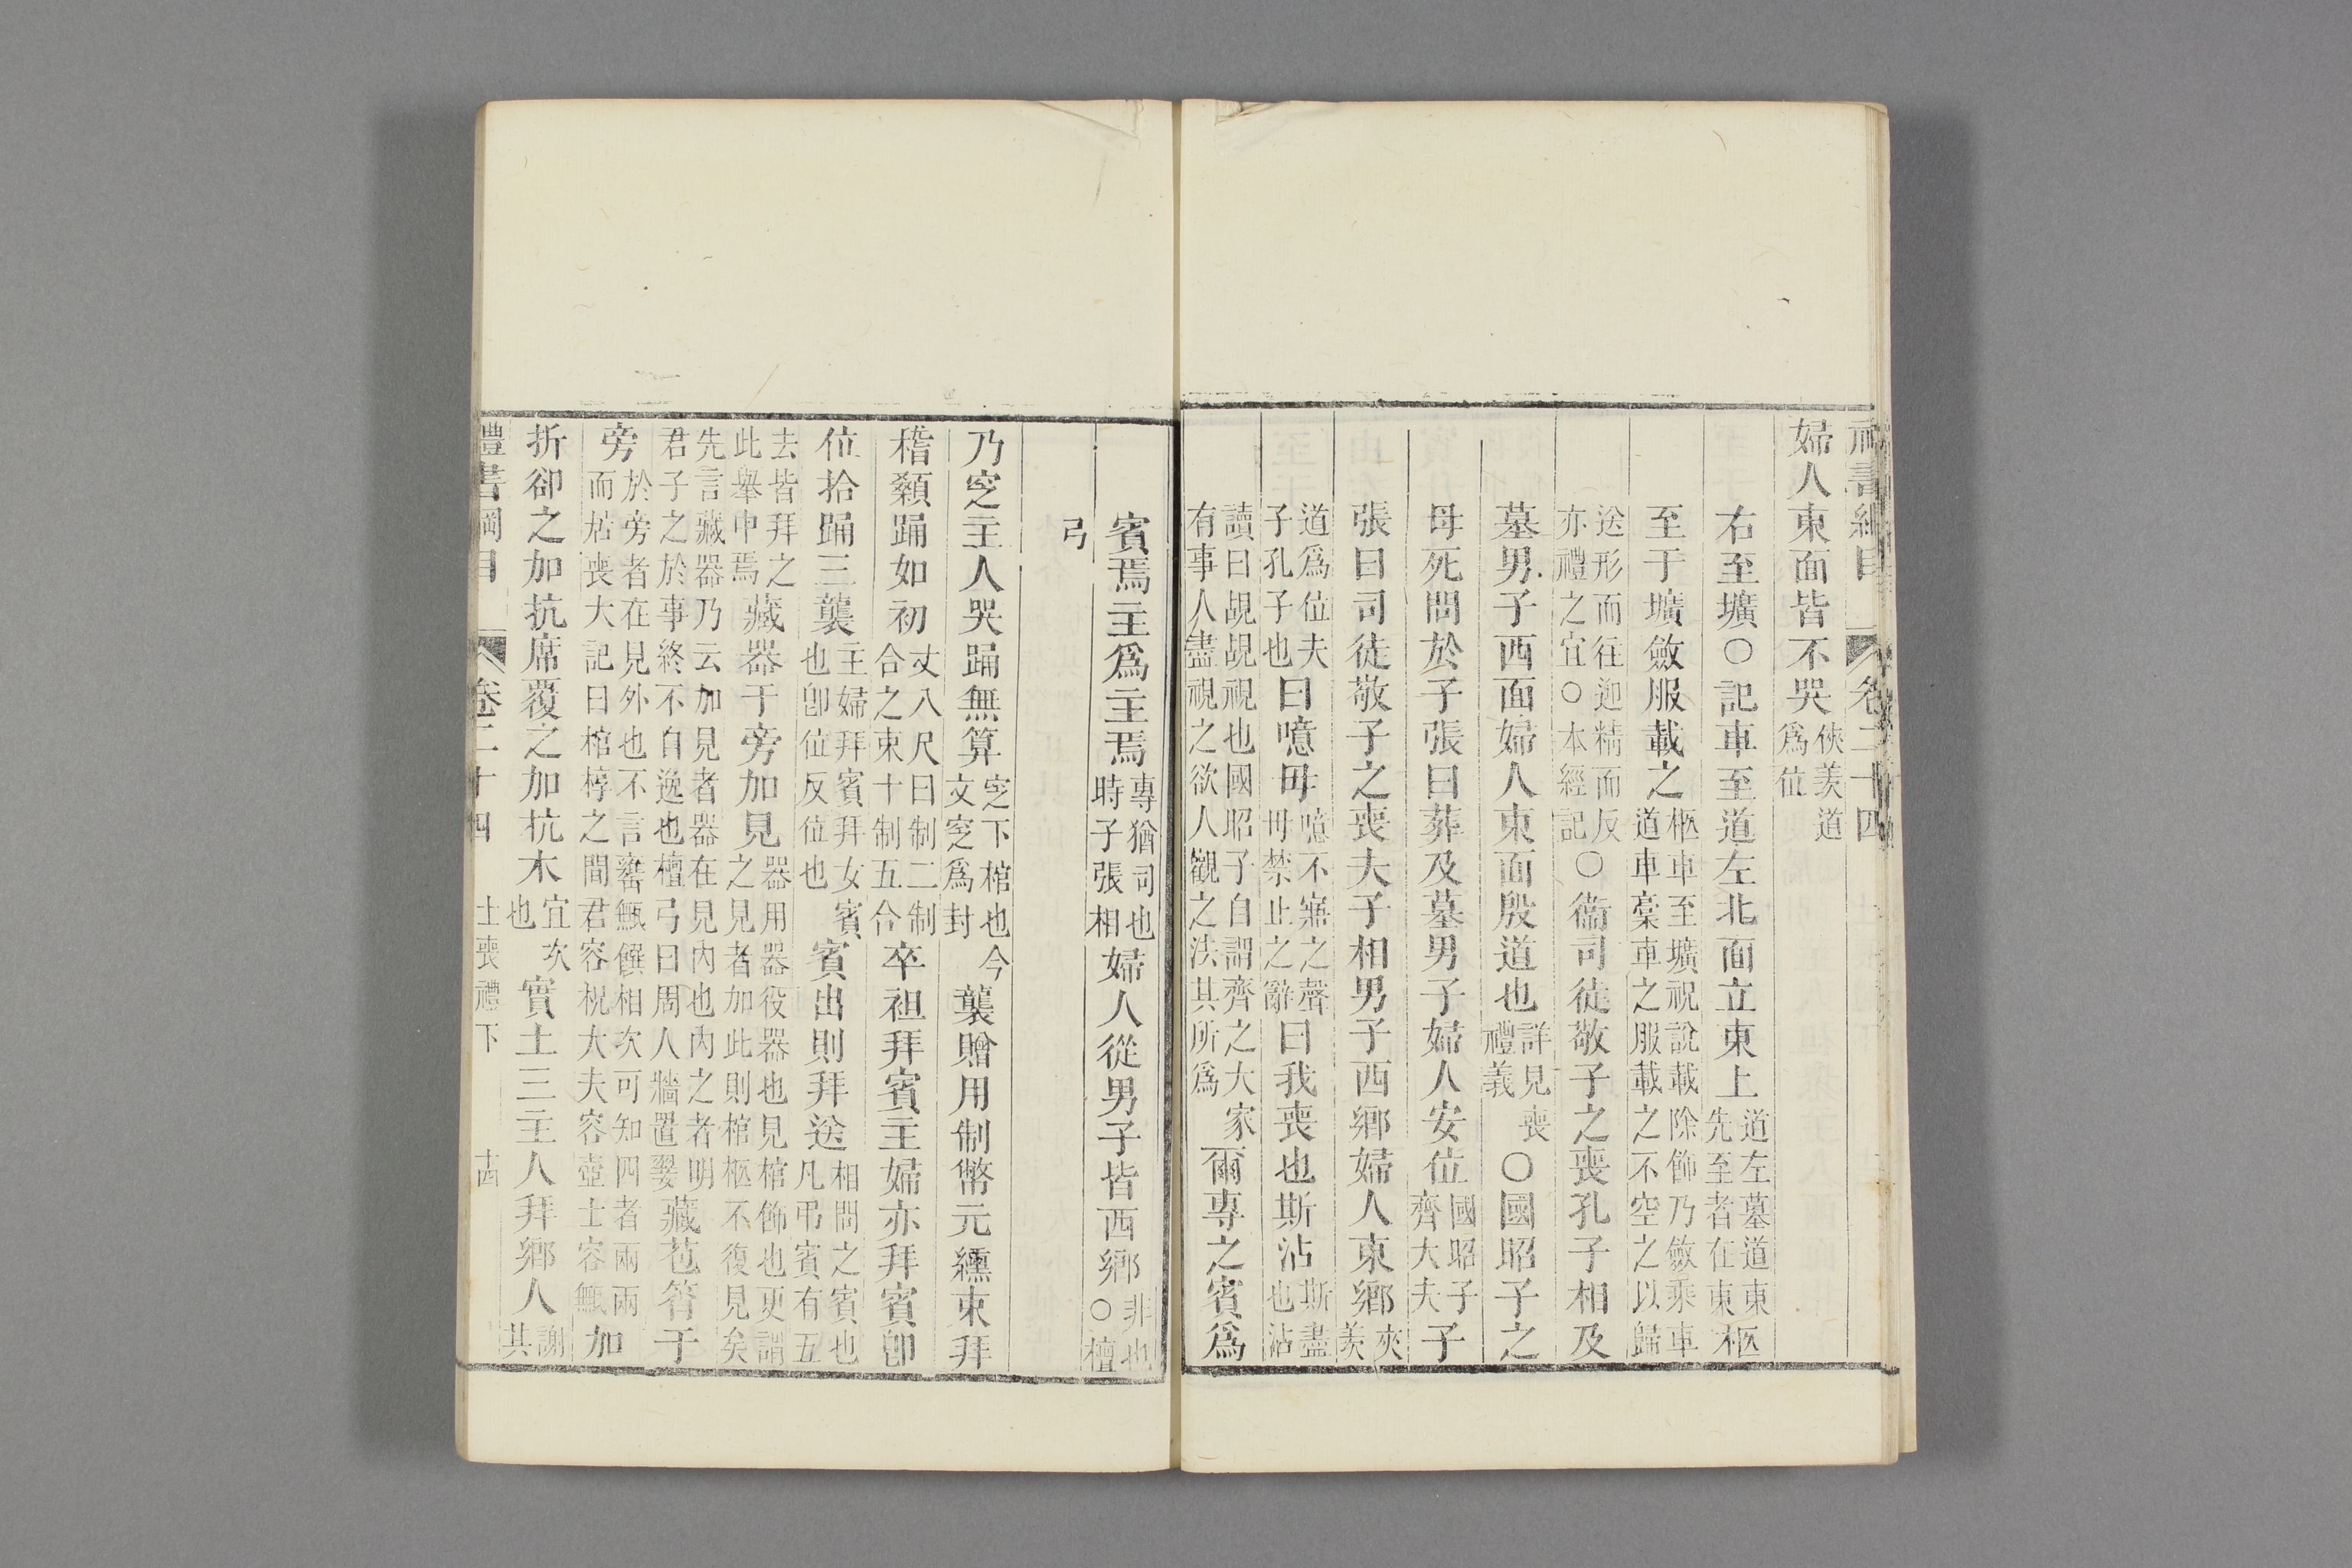 禮書綱目 卷二十四
婦人東面皆不哭俠羨道爲位
右至壙○記車至道左北面立東上道左墓道東先至者在東柩
至于壙斂服載之柩車至壙祝說載除飾乃斂乘車道車槀車之服載之不空之以歸
送形而往迎精而反亦禮之宜○本經記○衞司徒敬子之喪孔子相及
墓男子西面婦人東面殷道也詳見喪禮義○國昭子之
母死問於子張曰葬及墓男子婦人安位國昭子齊大夫子
張曰司徒敬子之喪夫子相男子西鄉婦人東鄉夾羨
道爲位夫子孔子也曰噫毋噫不寤之聲毋禁止之辭曰我喪也斯沾斯盡也沾
讀曰覘覘視也國昭子自謂齊之大家有事人盡視之欲人觀之法其所爲爾專之賓爲
賓焉主爲主焉專猶司也時子張相婦人從男子皆西鄉非也○檀
弓
乃窆主人哭踊無算窆下棺也今文窆爲封襲贈用制幣元纁束拜
稽顙踊如初丈八尺曰制二制合之束十制五合卒袒拜賓主婦亦拜賓卽
位拾踊三襲主婦拜賓拜女賓也卽位反位也賓出則拜送相問之賓也凡弔賓有五
去皆拜之此舉中焉藏器于旁加見器用器役器也見棺飾也更謂之見者加此則棺柩不復見矣
先言藏器乃云加見者器在見內也內之者明君子之於事終不自逸也檀弓曰周人牆置翣藏苞筲于
旁於旁者在見外也不言罋甒饌相次可知四者兩兩而居喪大記曰棺椁之間君容柷大夫容壺士容甒加
折卻之加抗席覆之加抗木宜次也實土三主人拜鄉人謝其
禮書綱目 卷二十四 士喪禮下 十四